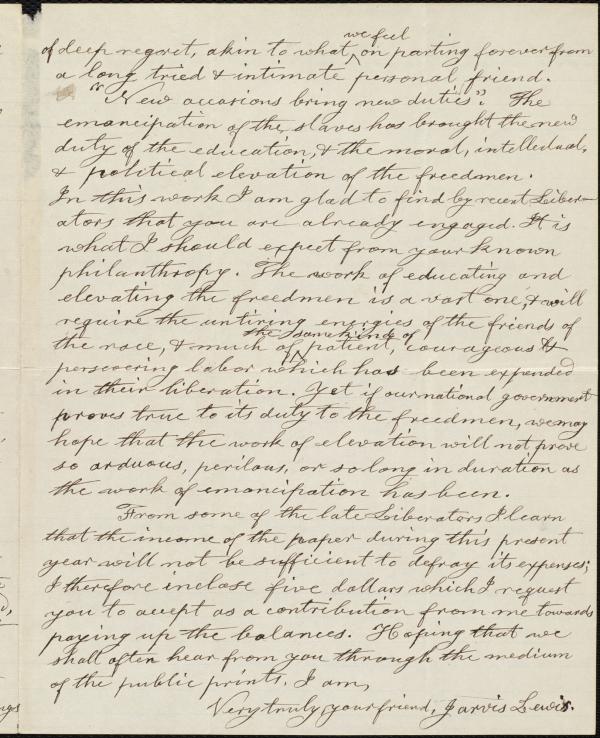 we feel
of deep regret, akin to what ^ on parting forever from
a long tried & intimate personal friend.
"New occasions bring new duties". The
emancipation of the slaves has brought the new
duty of the education, & the moral, intellectual,
& political elevation of the freedmen.
In this work I am glad to find by recent Liber-
ators that you are already engaged. It is
what I should expect from your known
philanthropy. The work of educating and
elevating the freedmen is a vast one, & will
require the untiring energies of the friends of
the same kind of
the race, & much of ^ patient, courageous &
persevering labor which has been expended
in their liberation. Yet if our national government
proves true to its duty to the freedmen, we may
hope that the work of elevation will not prove
so arduous, perilous, or so long in duration as
the work of emancipation has been.
From some of the late Liberators I learn
that the income of the paper during this present
year will not be sufficient to defray its expenses;
I therefore inclose five dollars which I request
you to accept as a contribution from me towards
paying up the balances. Hoping that we
shall often hear from you through the medium
of the public prints, I am,
Very truly your friend, Jarvis Lewis.